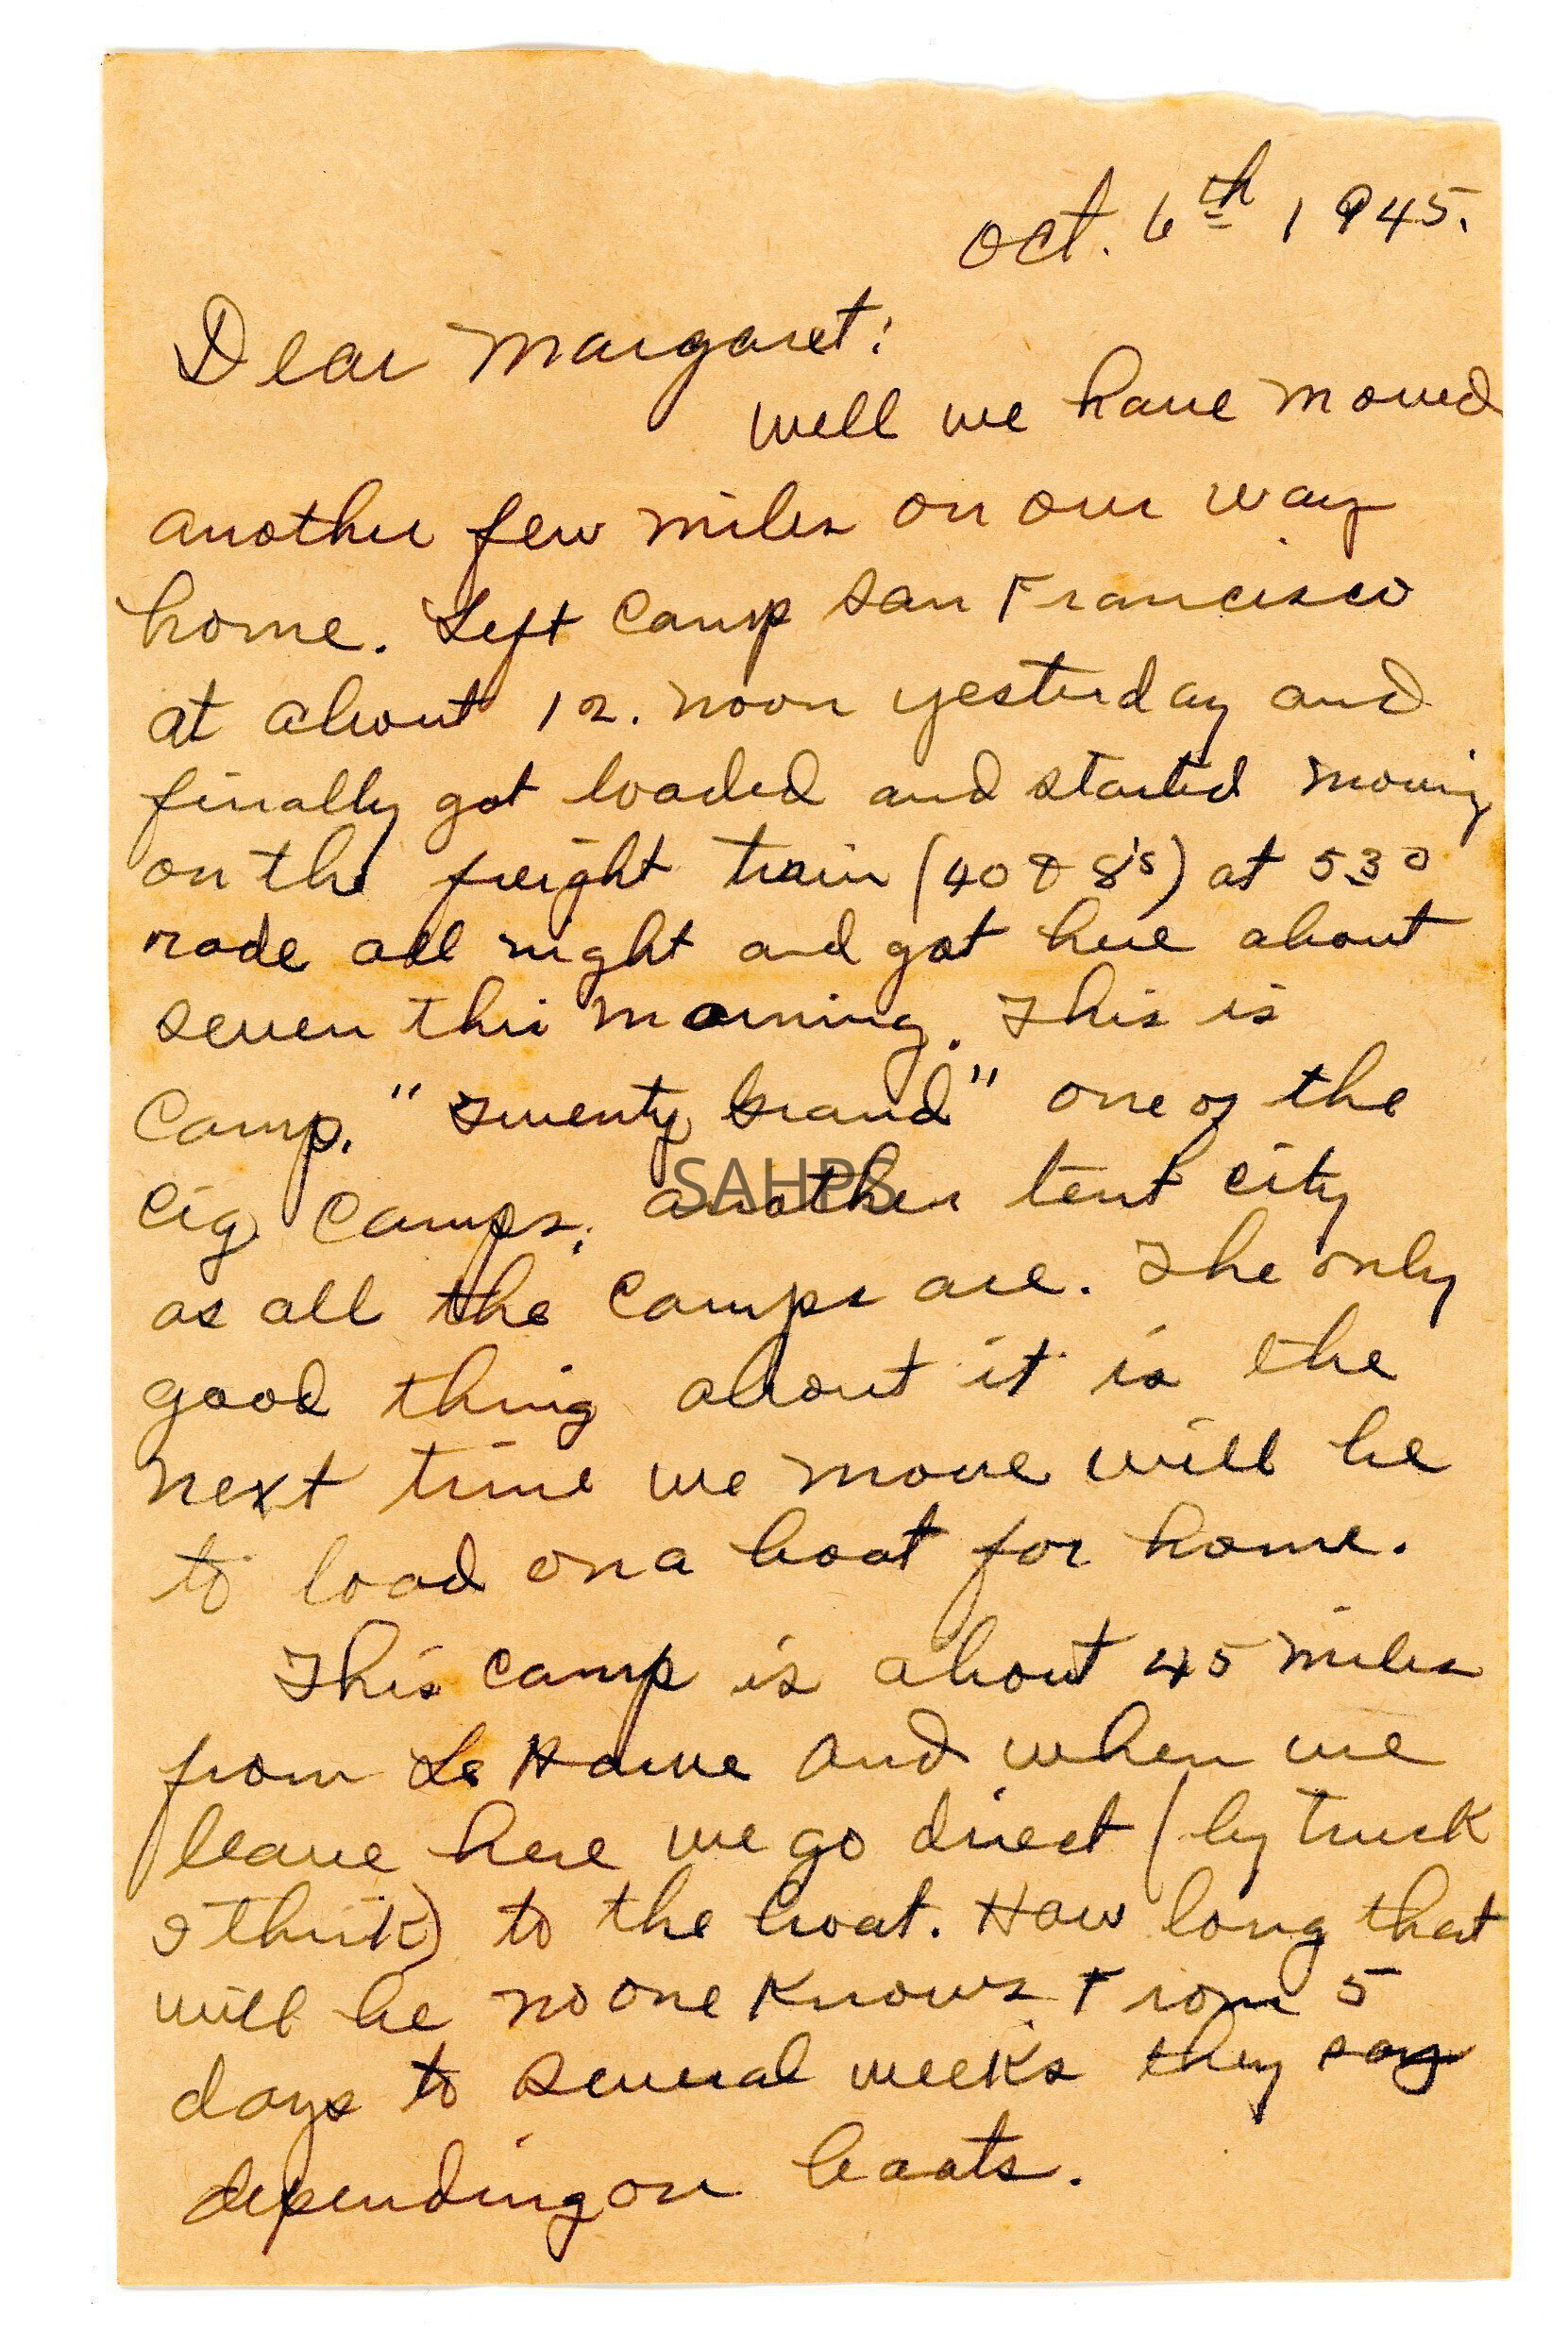 Oct. 6th 1945.
Dear Margaret:
Well we have moved
another few miles on our way
home. Left Camp San Francisco
at about 12. noon yesterday and
finally got loaded and started moving
on the freight train (40 & 8's) at 530
rode all night and got here about
seven this morning. This is
Camp. "Twenty Grand" one of the
Cig Camps; another tent city
SAHPS
as all the camps are. The only
good thing about it is the
next time we move will be
to load on a boat for home.
This camp is about 45 miles
from Le Havre and when we
leave here we go direct (by truck
I think) to the boat. How long that
will be no one knows From 5
days to several weeks they say
depending on boats.